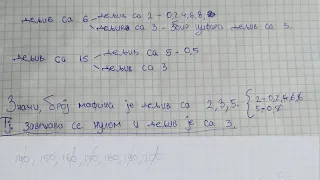 дељив са 2 - 0,2,4,6,8,
дељив са 6
дељив са 3 - збир цифара дељив са 3.
дељив са 5 - 0,5
дељив са 15
дељив са 3
Значи, број мафина је дељив са 2,3,5.
2 - 0,2,4,6,8
5 - 0,5
Тј. завршава се нулом и дељив је са 3.